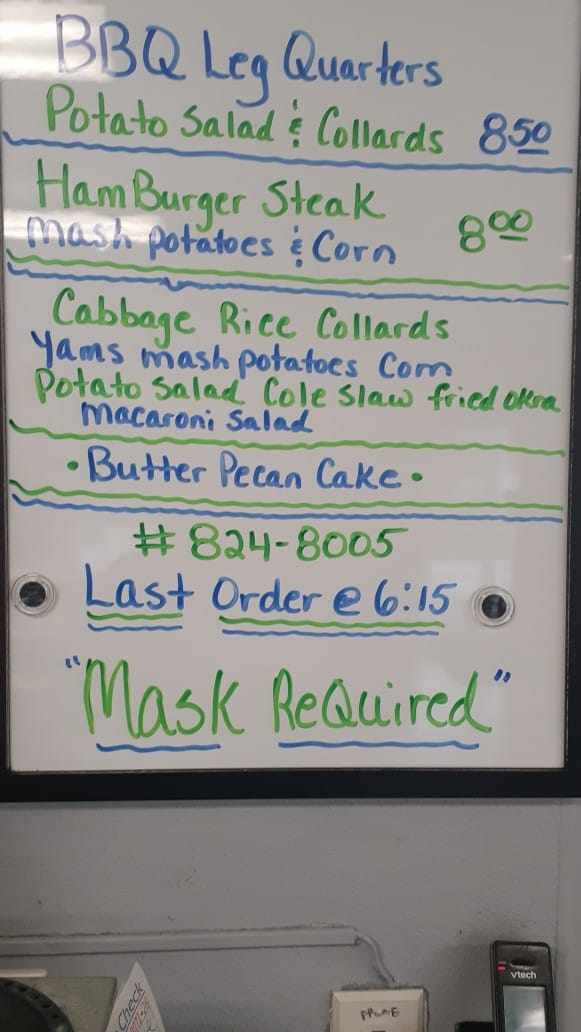 BBQ Leg Quarters
Potato Salad & Collards 8.50
HamBurger Steak
mash potatoes & Corn 8.00
Cabbage Rice Collards
Yams mash potatoes Corn
Potato Salad Cole Slaw fried okra
macaroni Salad
• Butter Pecan Cake •
# 824-8005
Last Order @ 6:15
"Mask ReQuired"
vtech
PHONE
Check